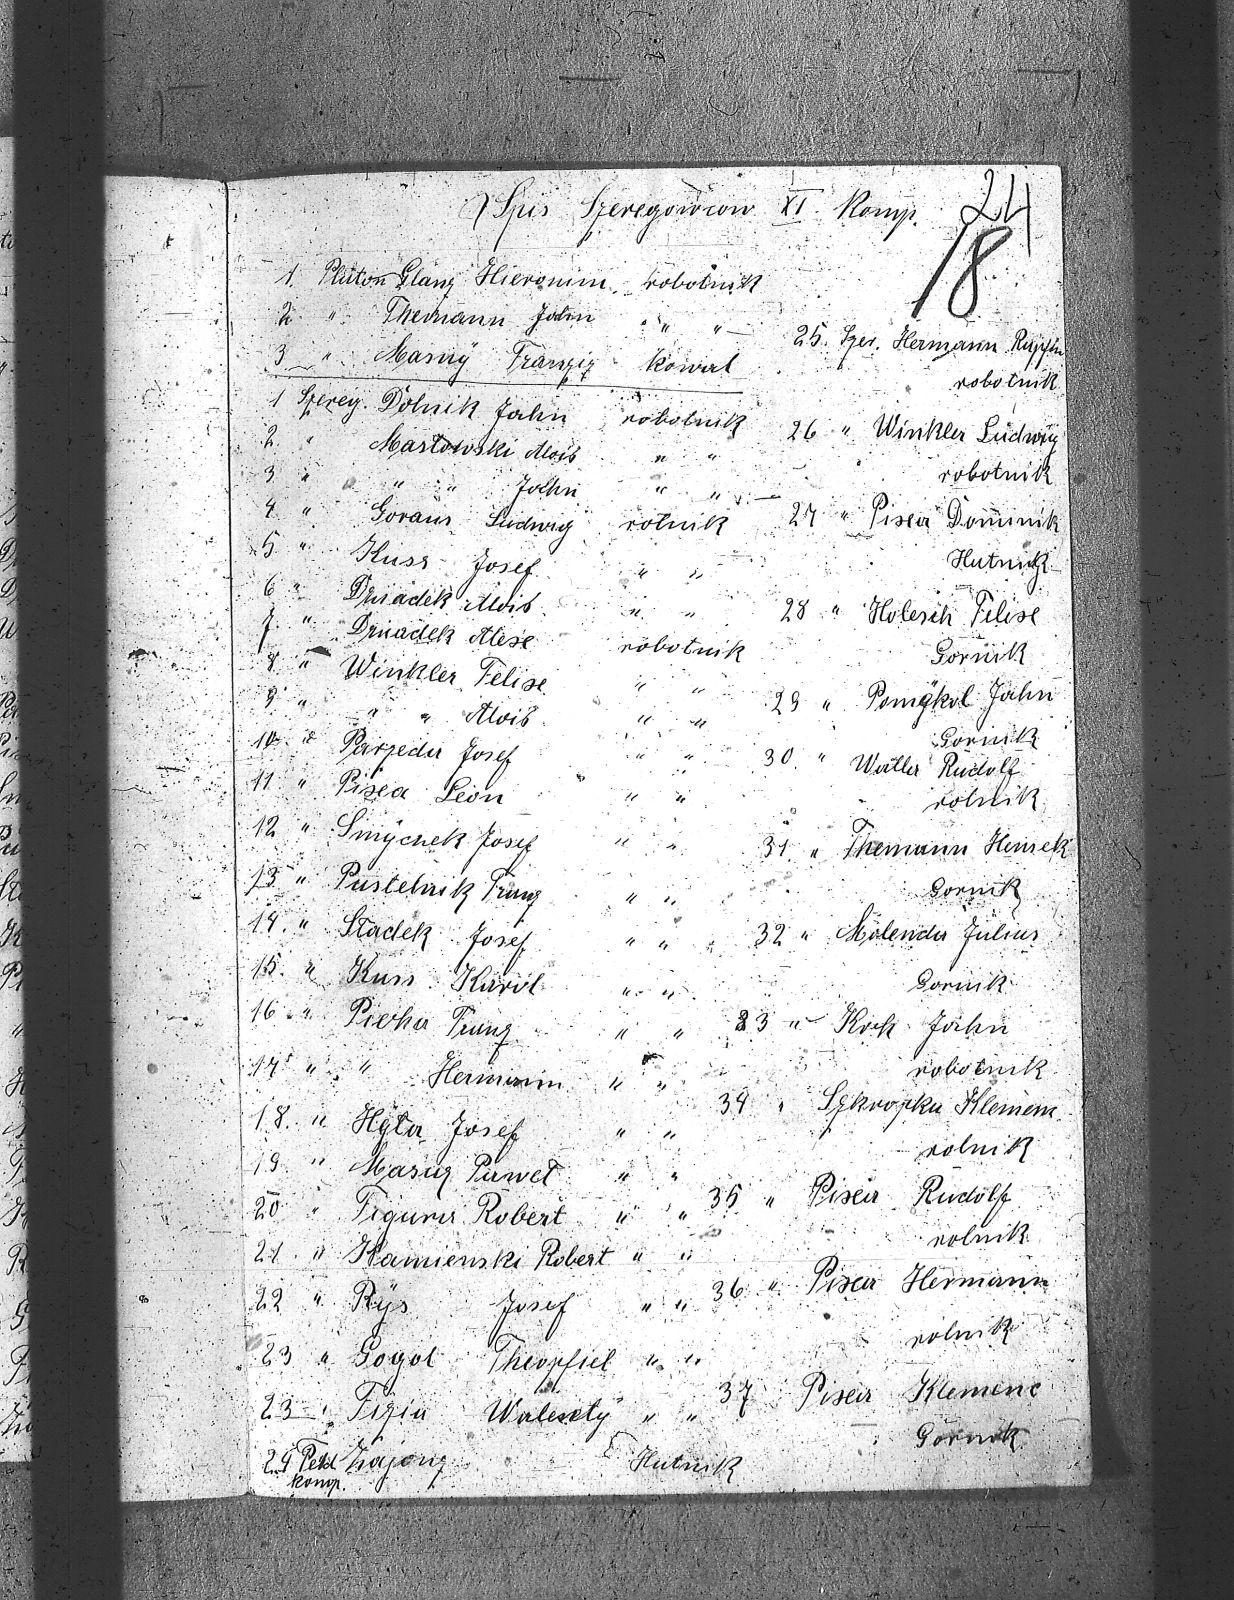 Spis Szeregowcow XI Komp.
24
18
1. Pluton Glanz Hieronim robotnik
2. " Themann John " "
3 " Masny Franziz kowal
1 Szereg. Dolnik Jahn robotnik
2. " Mastowski Alois " "
3 " " " Jahn " "
4 " Goraus Ludwig rolnik
5 " Kuss Josef " "
6 " Dziadek Alois " "
7. " Dziadek Alese robotnik
8 " Winkler Felise " "
9 " " " Alois " "
10. " Parzeda Josef " "
11 " Pisea Leon " "
12 " Smyczek Josef " "
13 " Pustelnik Franz " "
14. " Stadek Josef " "
15. " Kuss Karol " "
16 " Piecha Franz " "
17 " " Hermann " "
18. " Josef " "
19 " Masuz Pawet " "
20 " Figura Robert " "
21. " Kamienski Robert " "
22 " Rÿs Josef " "
23 " Gogol Theopfiel " "
23 " Fizia " "
24 komp. Zajonz Hutnik
25. Szer. Hermann
robotnik
26 " Winkler Ludwig
robotnik
27 " Pisea Dominik
Hutnik
28 " Holesch Felise
Gornik
29 " Pomykol Jahn
Gornik
30 " Rudolf
rolnik
31 " Themann Hensek
Gornik
32 " Molenda Julius
Gornik
33 " Kock Jahn
robotnik
34 " Szkropka Klemenc
rolnik
35 " Pisea Rudolf
rolnik
36 " Pisea Hermann
rolnik
37 Pisea Klemenc
Gornik